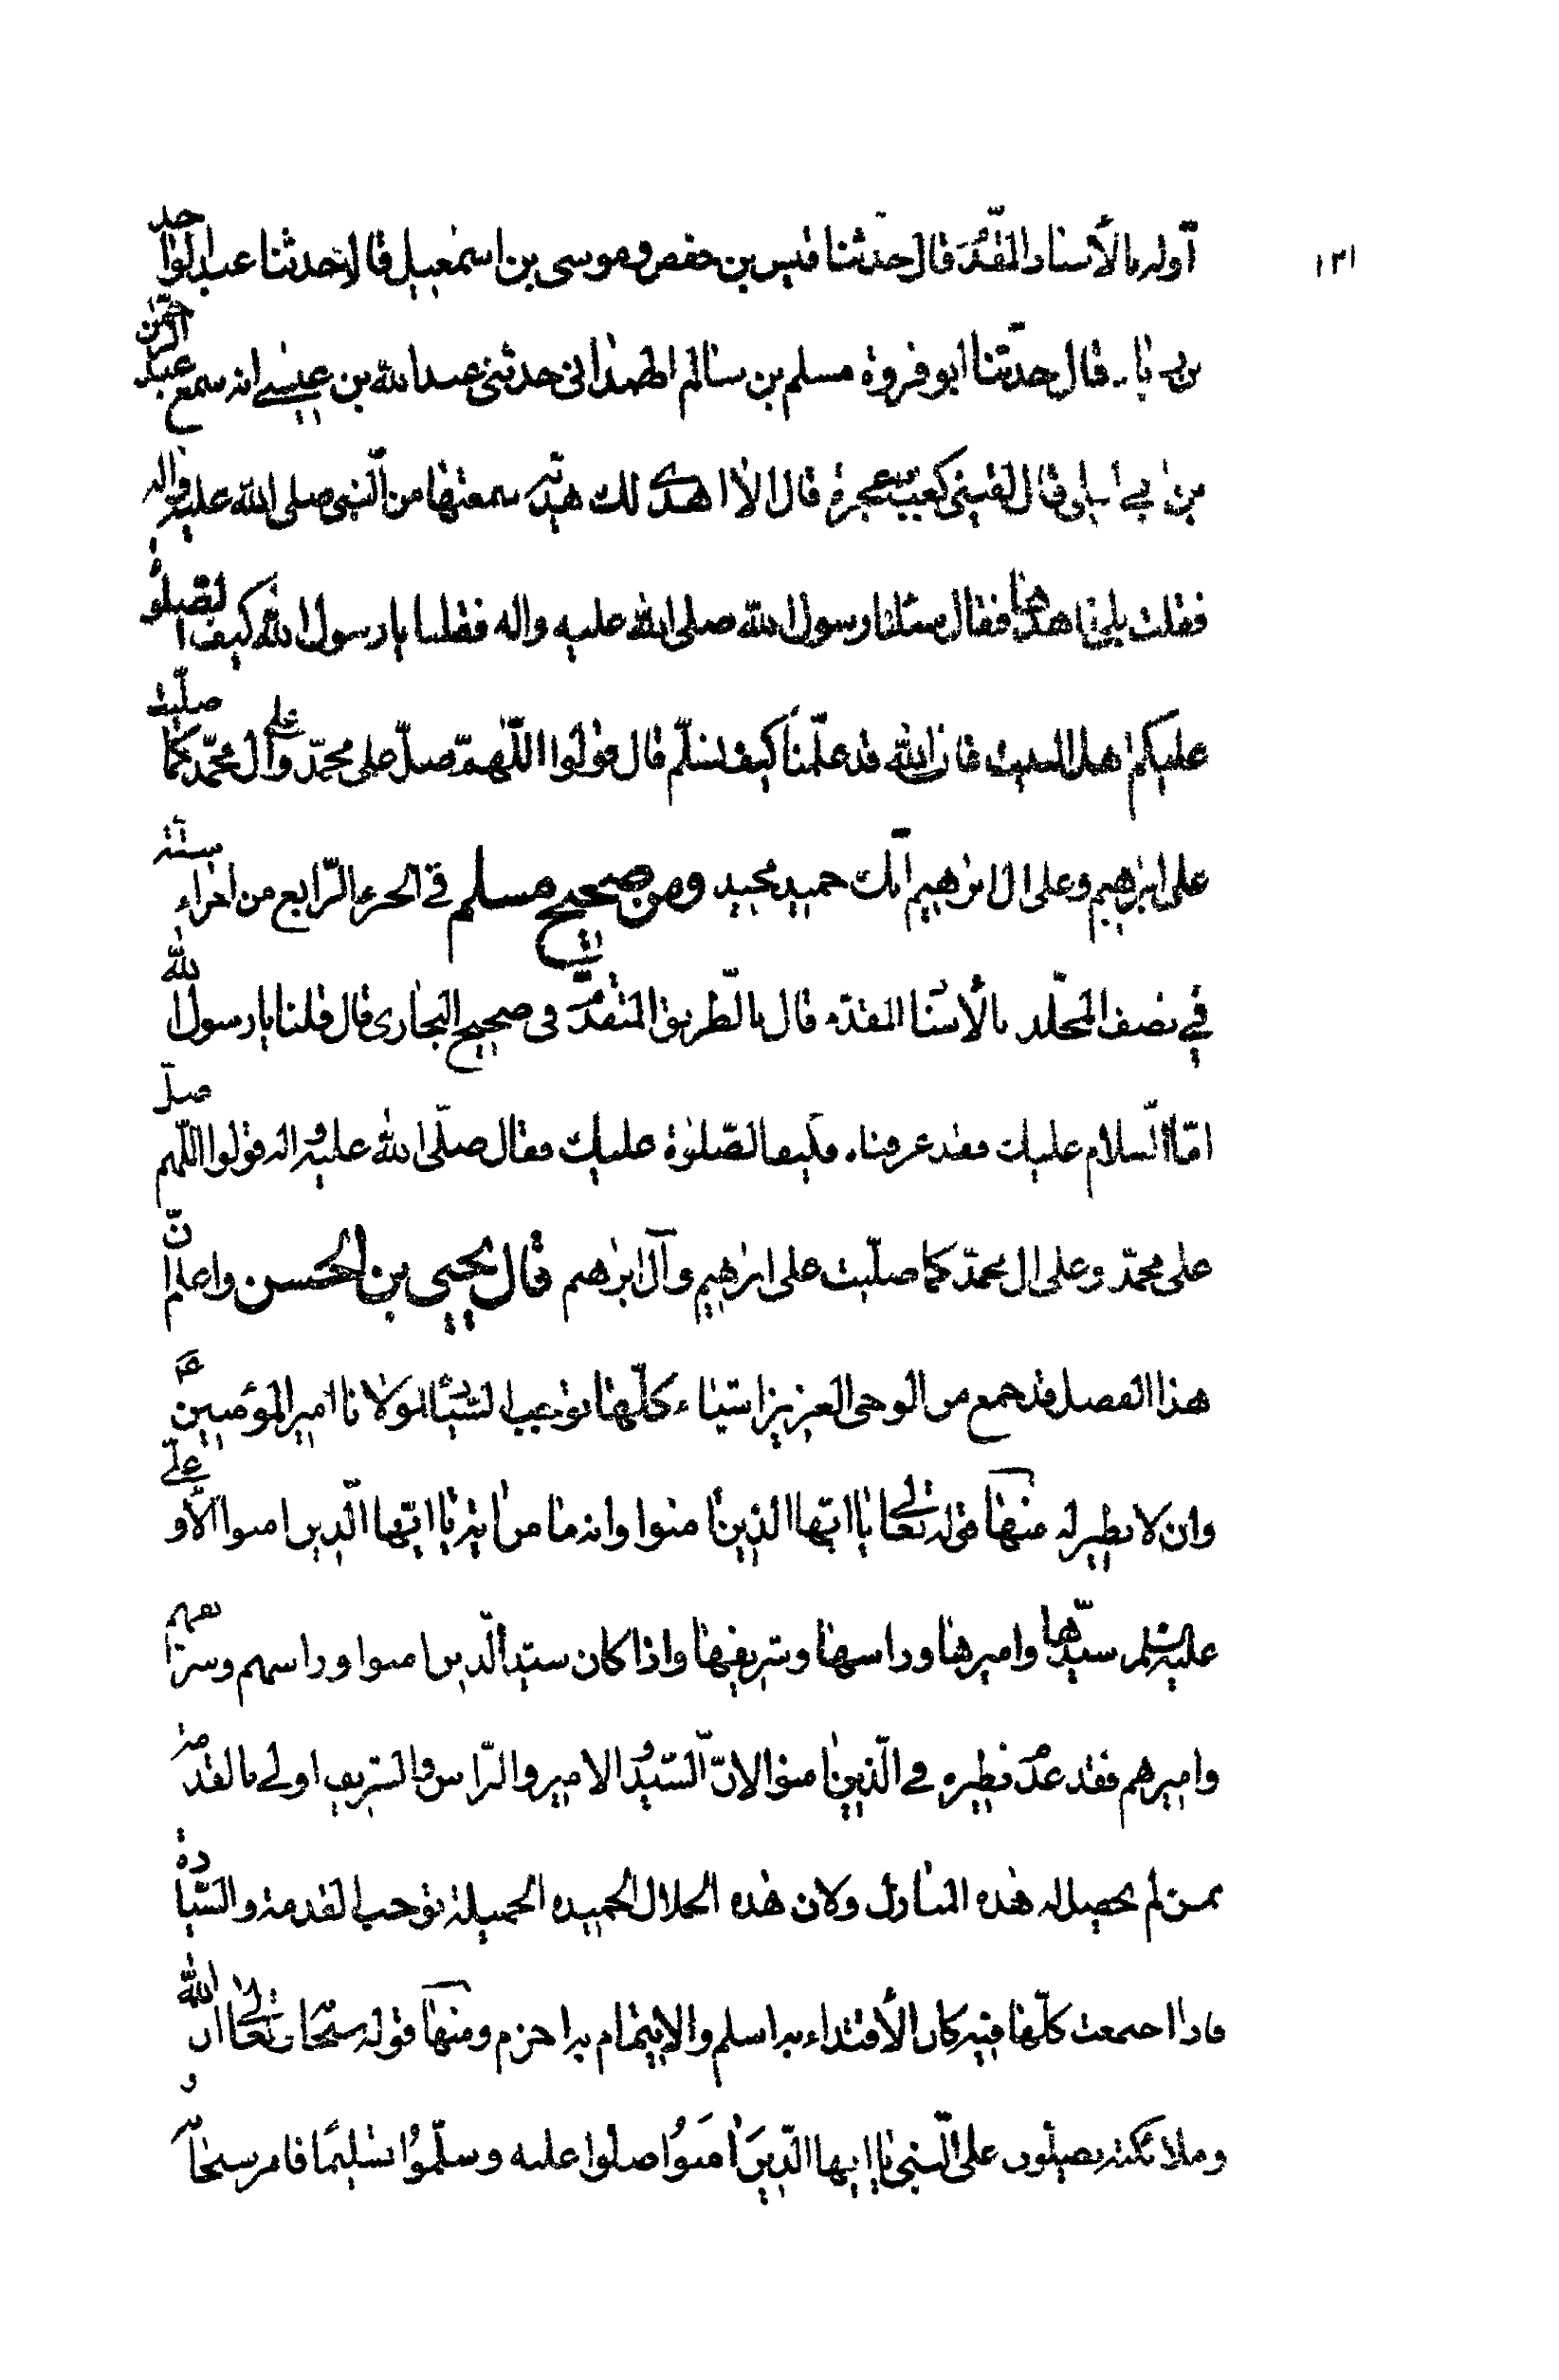 ١٣١
أوله بالأسناد المقدّم قال حدثنا قيس بن حفص وموسى بن اسمعيل قالا حدثنا عبد الواحد
بن زياد قال حدثنا ابو فروة مسلم بن سالم الهمداني حدثني عبد الله بن عيسى انه سمع عبد الرحمن
بن ابي ليلى قال لقيني كعب بن عجرة قال الا اهدى لك هدية سمعتها من النبي صلى الله عليه واله
فقلت بلى فاهدها فقال سئلنا رسول الله صلى الله عليه واله فقلنا يا رسول الله كيف الصلوة
عليكم اهل البيت فان الله قد علّمنا كيف نسلّم قال قولوا اللّهمّ صلّ على محمّد وعلى آل محمّد كما صلّيت
على ابرهيم وعلى ال ابرهيم انّك حميد مجيد ومن صحيح مسلم في الجزء الرّابع من اجزاء ستة
في نصف المجلّد بالأسناد المقدّم قال بالطّريق المتقدّم في صحيح البخاري قال قلنا يا رسول الله
امّا السّلام عليك فقد عرفناه فكيف الصّلوة عليك فقال صلّى الله عليه واله قولوا اللّهم صلّ
على محمّد وعلى ال محمّد كما صلّيت على ابرهيم وآل ابرهيم قال يحيى بن الحسن واعلم انّ
هذا الفصل قد جمع من الوحي العزيز اشياء كلّها توجب لسيّدنا ومولانا امير المؤمنين ع
وان لا نظير له منها قوله تعالى يا ايّها الّذين امنوا وانه ما من اية يا ايّها الّذين امنوا الّا وعليّ
عليه السلم سيّدها واميرها وراسها وشريفها واذا كان سيّد الّذين امنوا وراسهم وشريفهم
واميرهم فقد عدم نظيره في الّذين امنوا لانّ السّيّد والامير والرّاس والشريف اولى بالقدمة
ممن لم يحصل له هذه المنازل ولان هذه الخلال الحميدة الجميلة توجب القدمة والسّيادة
فاذا اجتمعت كلّها فيه كان الأقتداء به اسلم والايتمام به احزم ومنها قوله سبحانه وتعالى انّ الله
وملائكته يصلّون على النّبي يا ايها الّذين امنوا صلّوا عليه وسلّموا تسليما فامر سبحانه